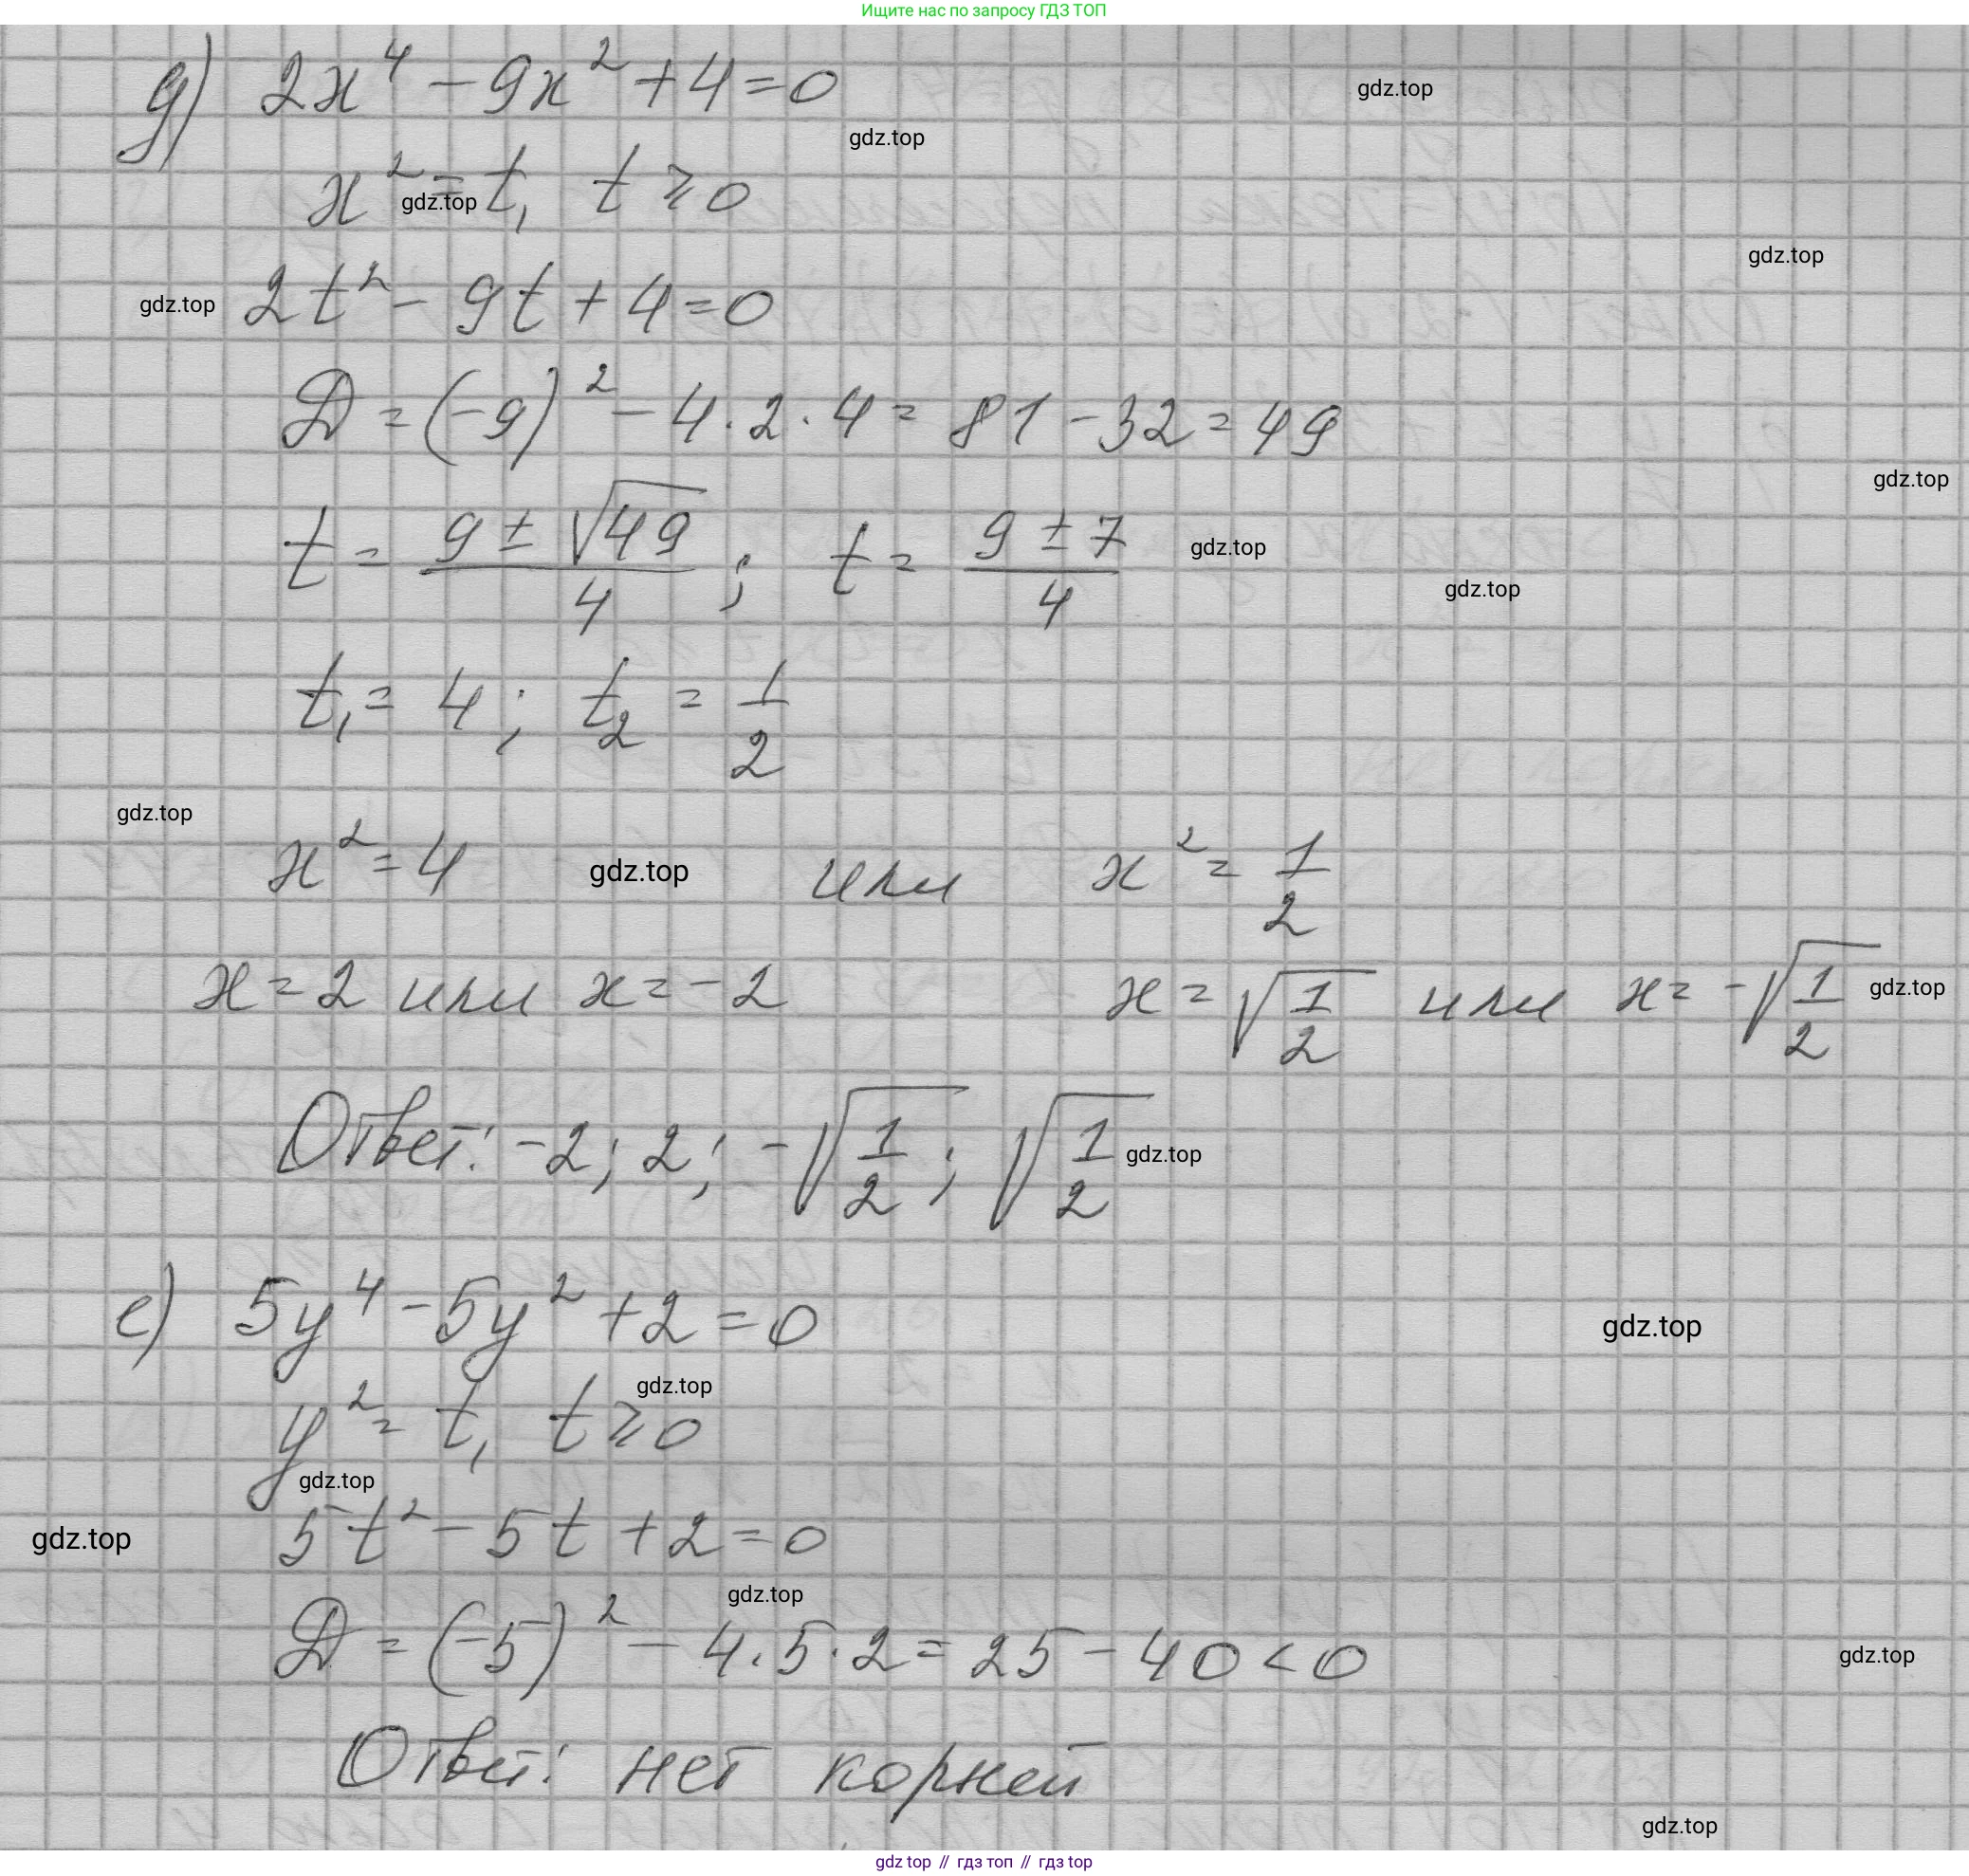 Ищите нас по запросу ГДЗ ТОП
д) 2x⁴ - 9x² + 4 = 0
gdz.top
gdz.top
x² = t, t ⩾ 0
gdz.top
gdz.top
2t² - 9t + 4 = 0
gdz.top
D = (-9)² - 4·2·4 = 81 - 32 = 49
gdz.top
t = (9 ± √49)/4 ; t = (9 ± 7)/4
gdz.top
gdz.top
t₁ = 4 ; t₂ = 1/2
gdz.top
x² = 4 gdz.top или x² = 1/2
x = 2 или x = -2 x = √(1/2) или x = -√(1/2) gdz.top
Ответ: -2; 2; -√(1/2) ; √(1/2) gdz.top
е) 5y⁴ - 5y² + 2 = 0
gdz.top
gdz.top
y² = t, t ⩾ 0
gdz.top
5t² - 5t + 2 = 0
gdz.top
gdz.top
D = (-5)² - 4·5·2 = 25 - 40 < 0
gdz.top
Ответ: нет корней
gdz.top
gdz top // гдз топ // гдз top